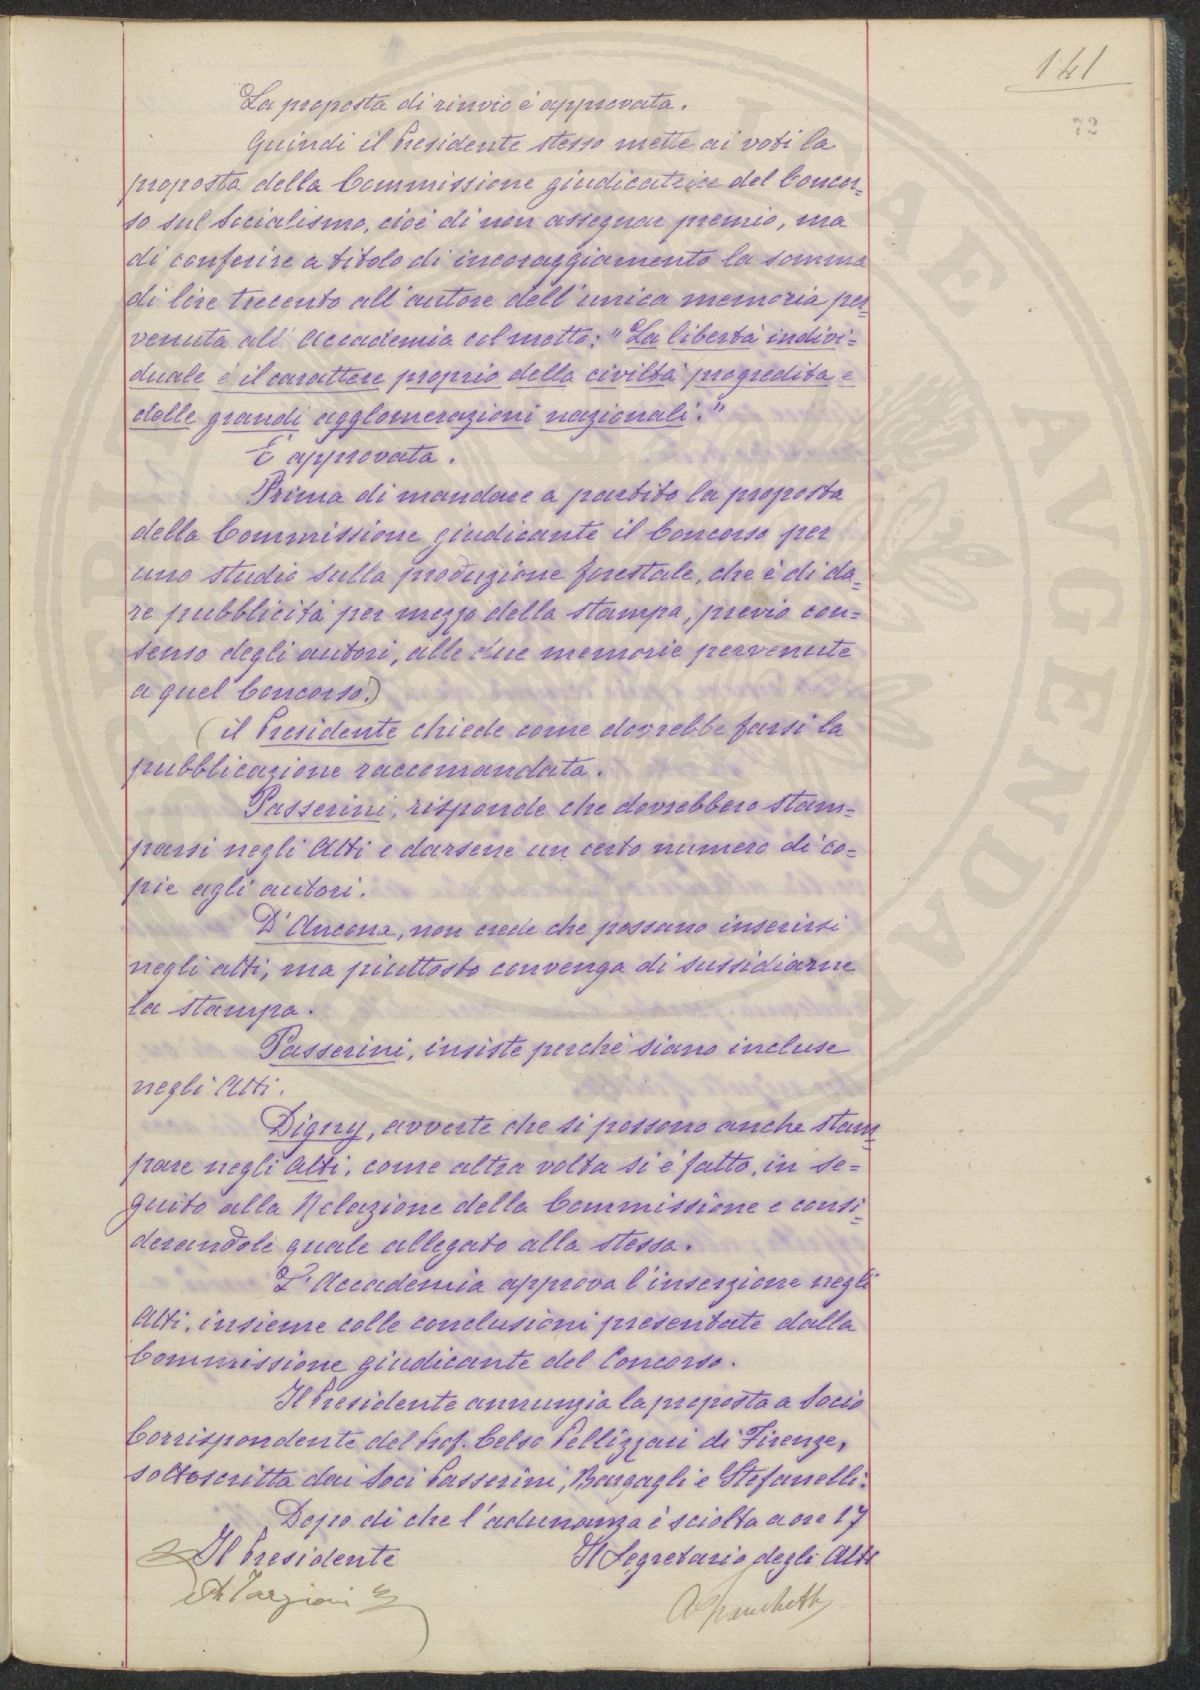 141
72
La proposta di rinvio è approvata.
Quindi il Presidente stesso mette ai voti la
proposta della Commissione giudicatrice del Concor=
so sul Socialismo, cioè di non assegnar premio, ma
di conferire a titolo di incoraggiamento la somma
di lire trecento all'autore dell'unica memoria per=
venuta all'Accademia col motto: "La libertà indivi=
duale è il carattere proprio della civiltà progredita e
delle grandi agglomerazioni nazionali."
È approvata.
Prima di mandare a partito la proposta
della Commissione giudicante il Concorso per
uno studio sulla produzione forestale, che è di da=
re pubblicità per mezzo della stampa, previo con=
senso degli autori, alle due memorie pervenute
a quel Concorso.)
(il Presidente chiede come dovrebbe farsi la
pubblicazione raccomandata.
Passerini, risponde che dovrebbero stam=
parsi negli Atti e darsene un certo numero di co=
pie agli autori.
D'Ancona, non crede che possano inserirsi
negli atti, ma piuttosto convenga di sussidiarne
la stampa.
Passerini, insiste perché siano incluse
negli Atti.
Digny, avverte che si possono anche stam=
pare negli Atti, come altra volta si è fatto, in se=
guito alla Relazione della Commissione e consi=
derandole quale allegato alla stessa.
L'Accademia approva l'inserzione negli
Atti, insieme colle conclusioni presentate dalla
Commissione giudicante del Concorso.
Il Presidente annunzia la proposta a Socio
Corrispondente del Prof. Celso Pellizzari di Firenze,
sottoscritta dai Soci Passerini, Bargagli e Stefanelli.
Dopo di che l'adunanza è sciolta a ore 17
Il Presidente Il Segretario degli Atti
A Targioni